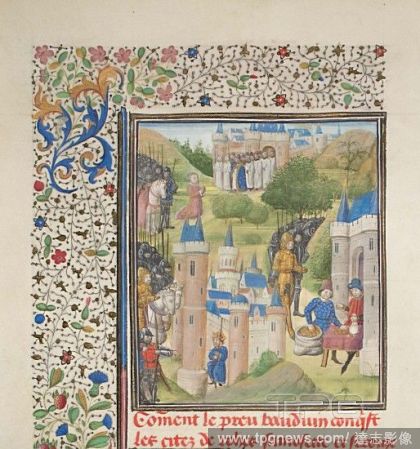 Coment le preu bauduin conqst
les citez de
TPG
www.tpgnews.com/達志影像